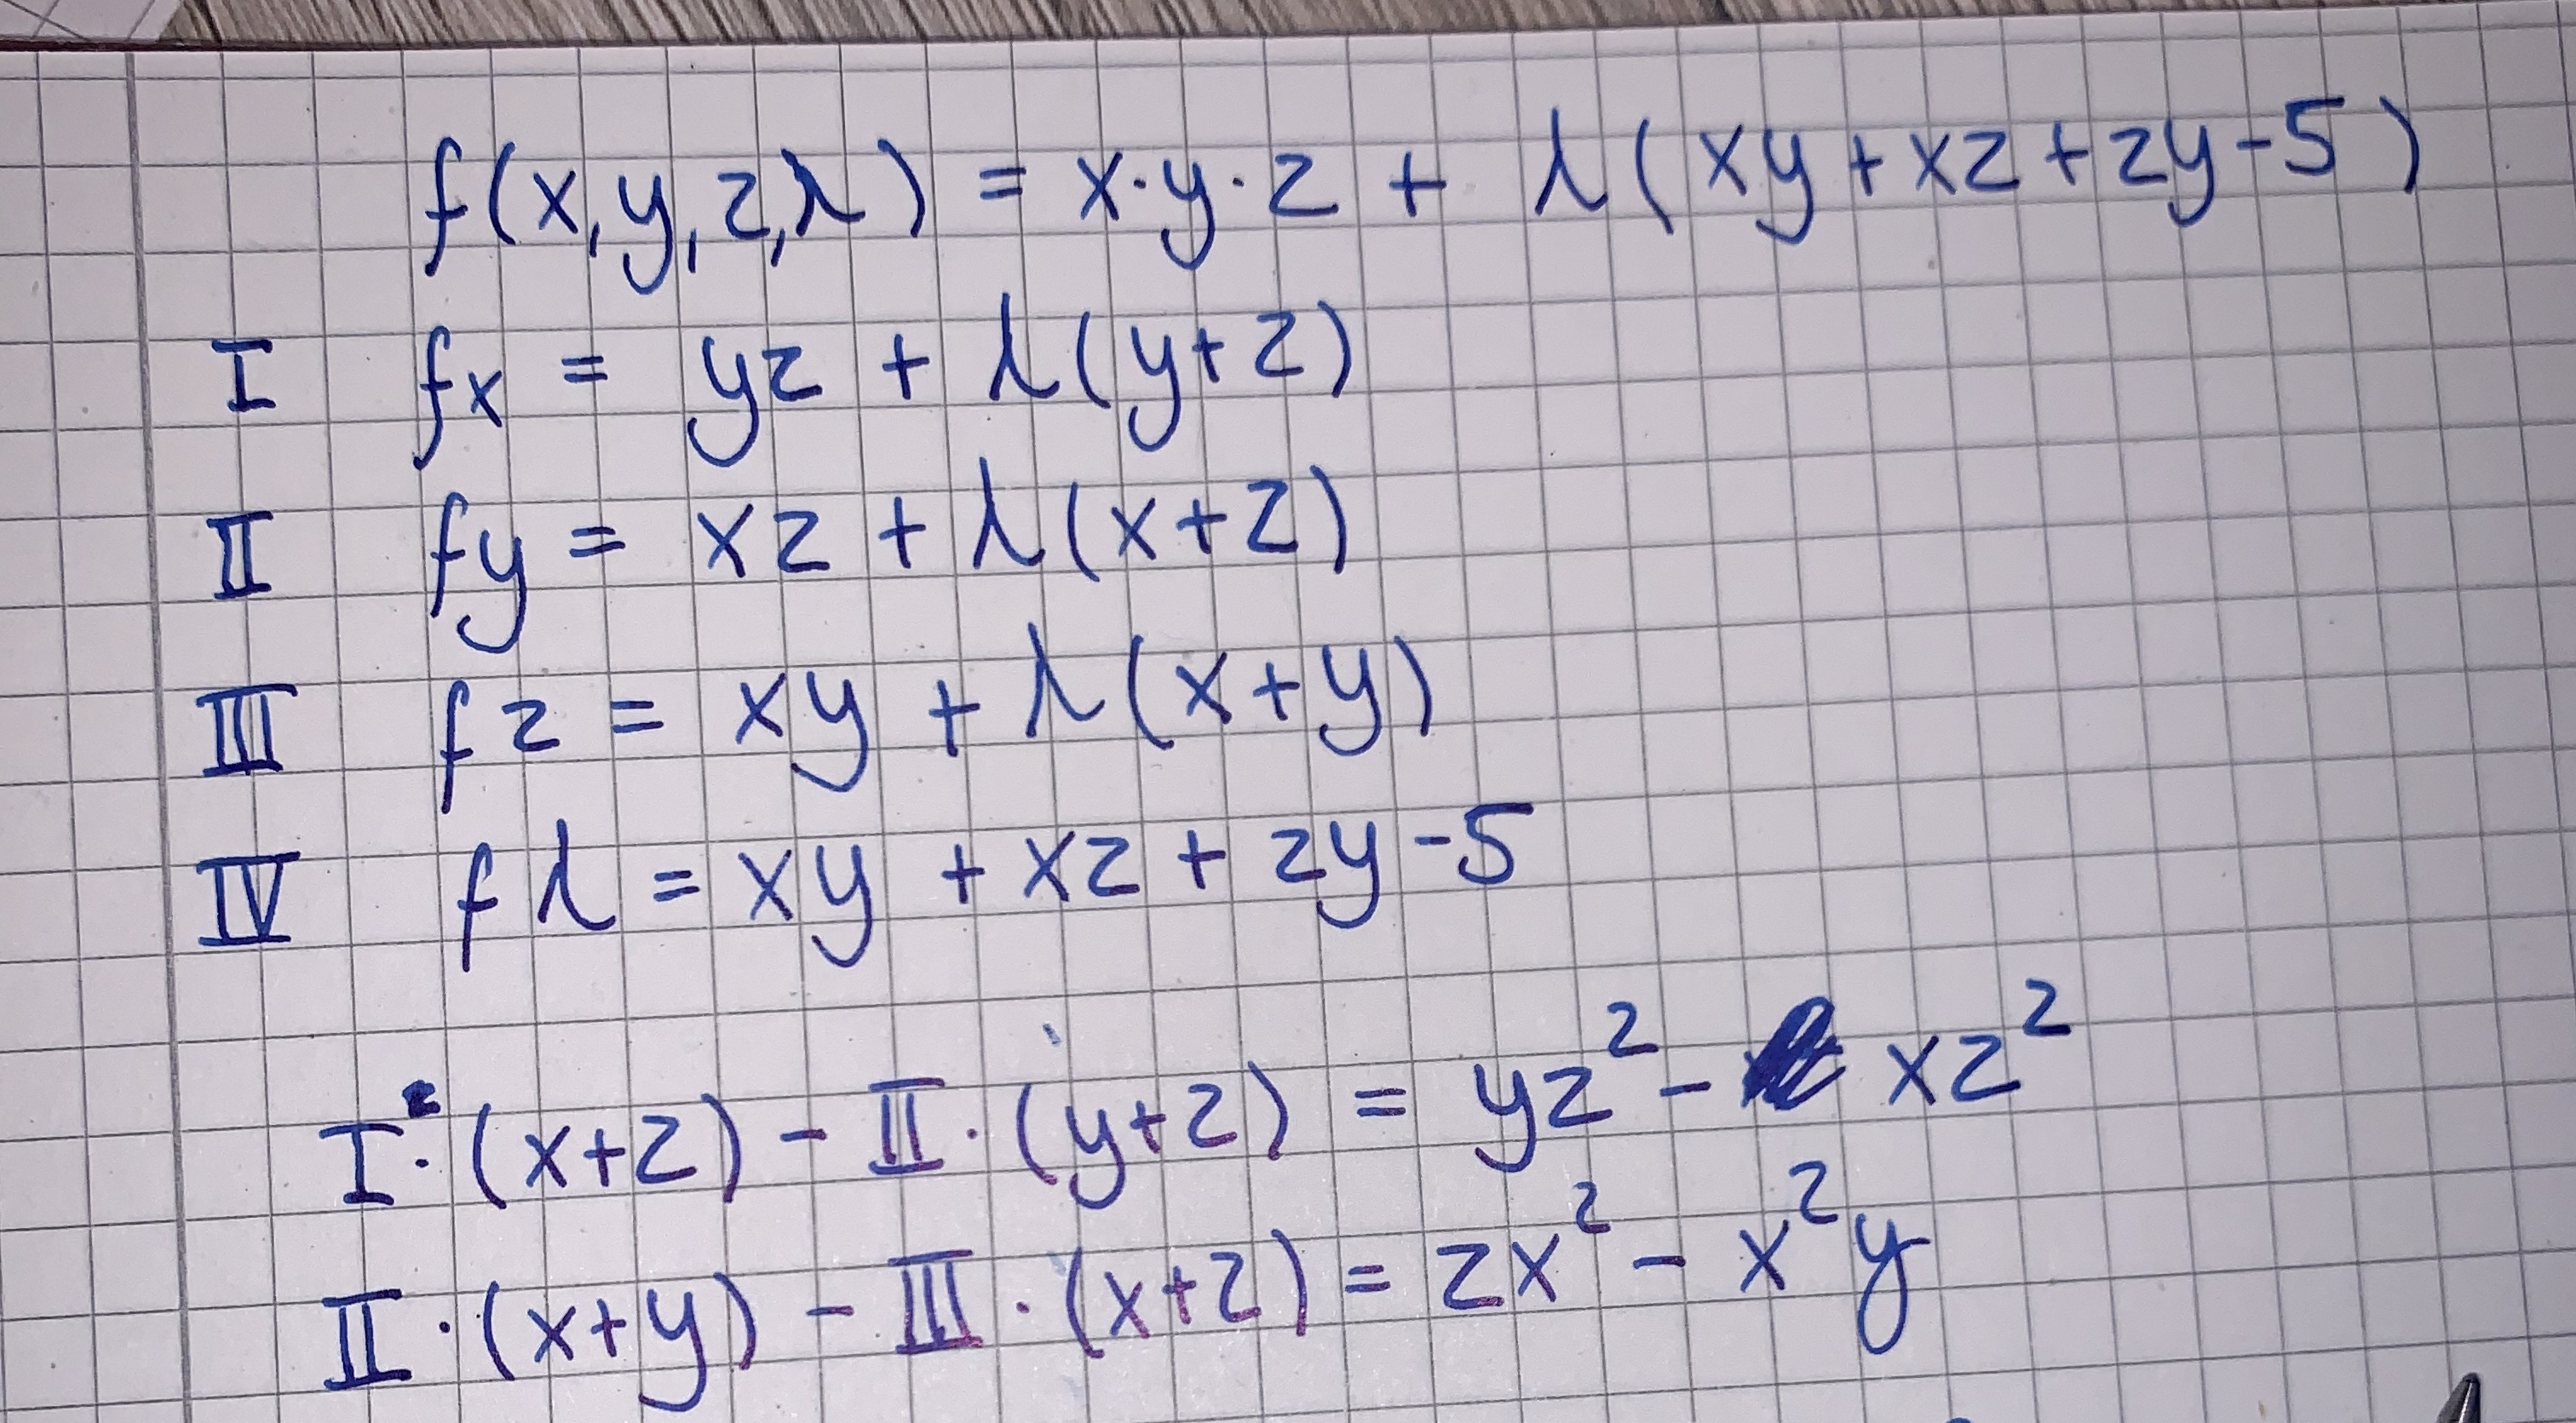 f(x,y,z,λ) = x·y·z + λ(xy+xz+zy-5)
I fx = yz + λ(y+z)
II fy = xz + λ(x+z)
III fz = xy + λ(x+y)
IV fλ = xy + xz + zy -5
I·(x+z) - II·(y+z) = yz² - xz²
II·(x+y) - III·(x+z) = zx² - x²y